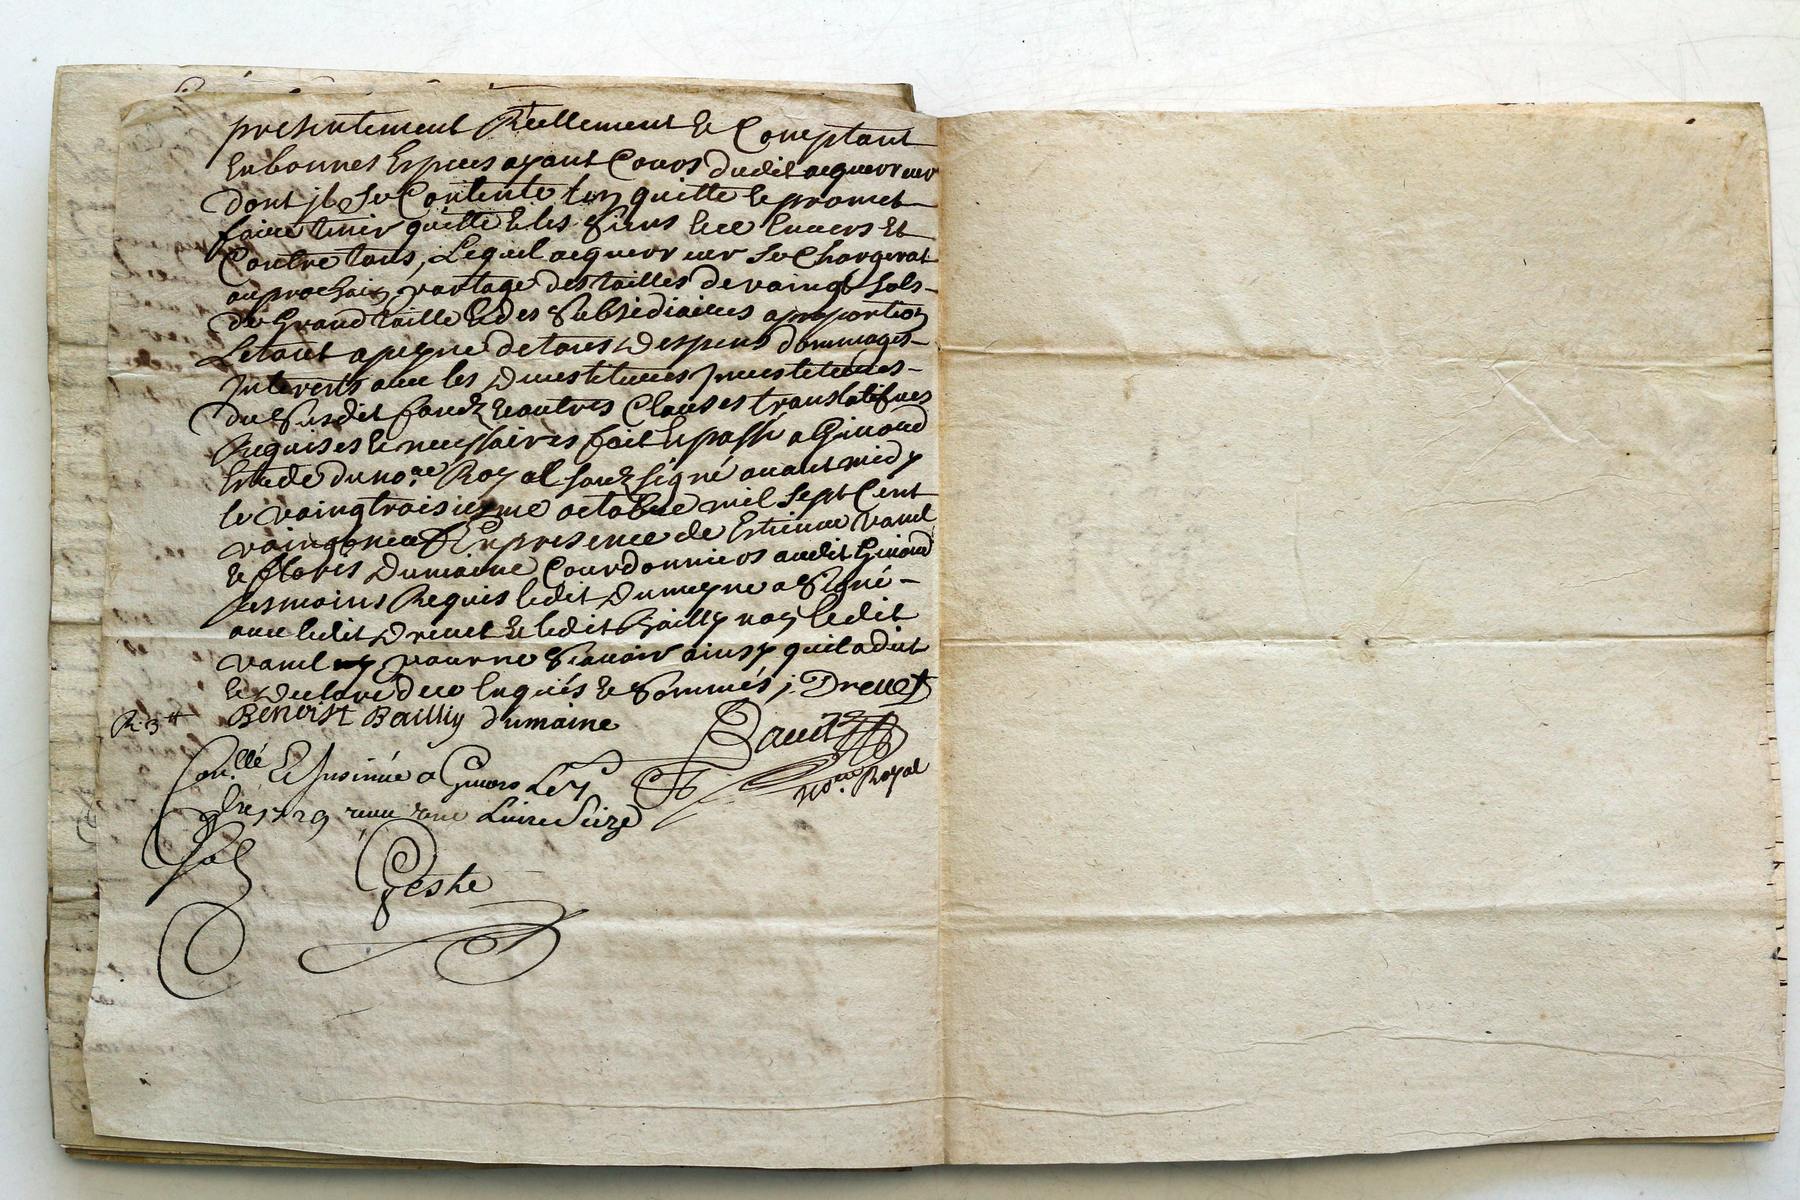 presentement Reellement & Comptant
En bonnes Especes ayant Cours dudit acquerreur
dont jl se Contente len quitte & promet
faire tenir quitte & les siens Ece Envers Et
Contre tous, Lequel acquerreur se Chargerat
au prochain partage des tailles de vaingt sols
de Grand taille & des subsidiaires aproportion
Le tout apeyne de tous Despens dommages
Interests avec les Devestitures Jnvestitures
du susdit fondz & autres Clauses translatifves
Requises & necessaires fait & passé a Givord
Estude du no.re Royal soubz signé avant midy
le vaingtroisieyme octobre mil sept Cent
vaingtneuf En presence de Estienne vanel
& floris Dumaine Courdonniers audit Givord
tesmoins Requis ledit Dumeyne a signé
avec ledit Drevet & ledit Bailly non ledit
vanel pour ne scavoir ainsy quil a dit
& Declaré dece Enquis & sommés j. Drevet
Benoist Bailly dumaine
R. 3tt
Con.llé & Insinué a Givors Le
1729
no.re Royal